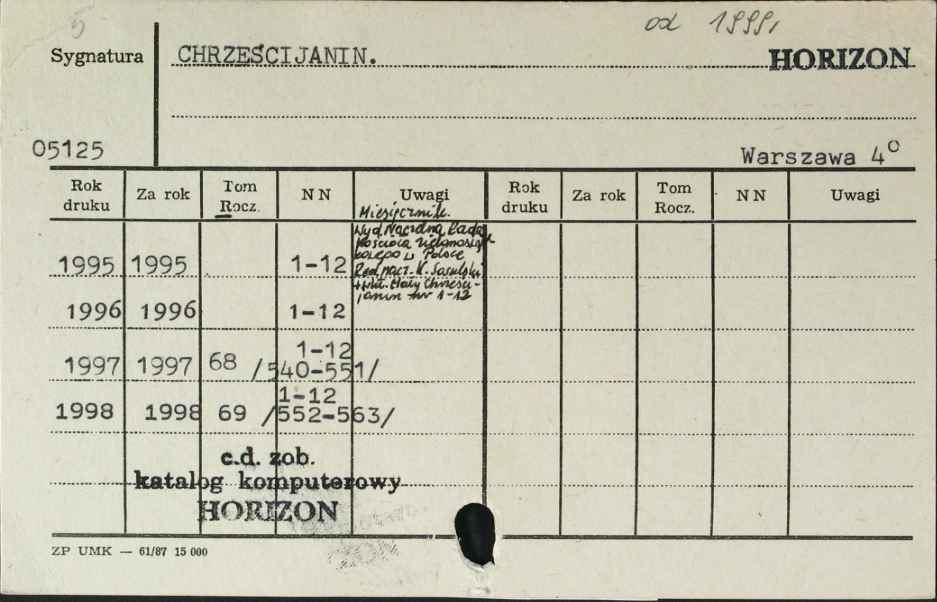 5
od 1999,
Sygnatura CHRZEŚCIJANIN. HORIZON
05125 Warszawa 4°
Rok druku Za rok Tom Rocz. N N Uwagi Rok druku Za rok Tom Rocz. N N Uwagi
Miesięcznik.
Wyd. Naczelna Rada
Kościoła Zielonoświąt
kowego w Polsce
Red. nacz. K. Sosulski
Mały Chrześci-
janin nr 1-12
1995 1995 1-12
1996 1996 1-12
1997 1997 68 1-12 /540-551/
1998 1998 69 1-12 /552-563/
c.d. zob.
katalog komputerowy
HORIZON
ZP UMK — 61/87 15 000